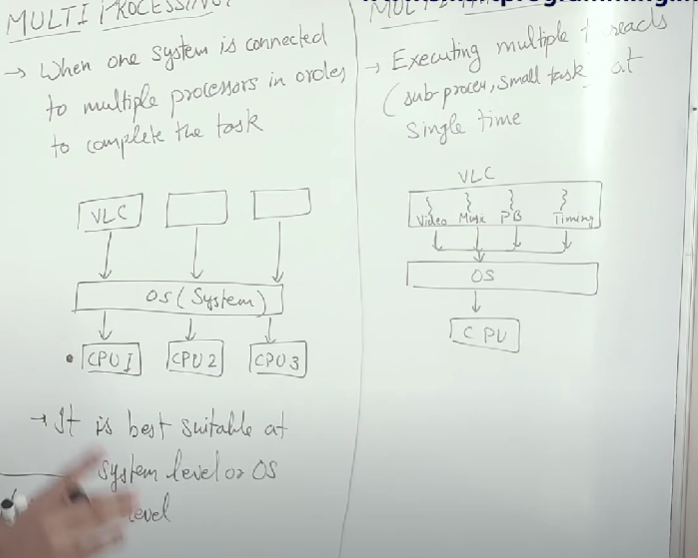 MULTI PROCESSING
→ When one system is connected
to multiple processors in order
to complete the task
VLC
OS (System)
CPU1 CPU2 CPU3
→ It is best suitable at
system level or OS
level
→ Executing multiple threads
(sub-process, small task) at
single time
VLC
Video Music PB Timing
OS
CPU